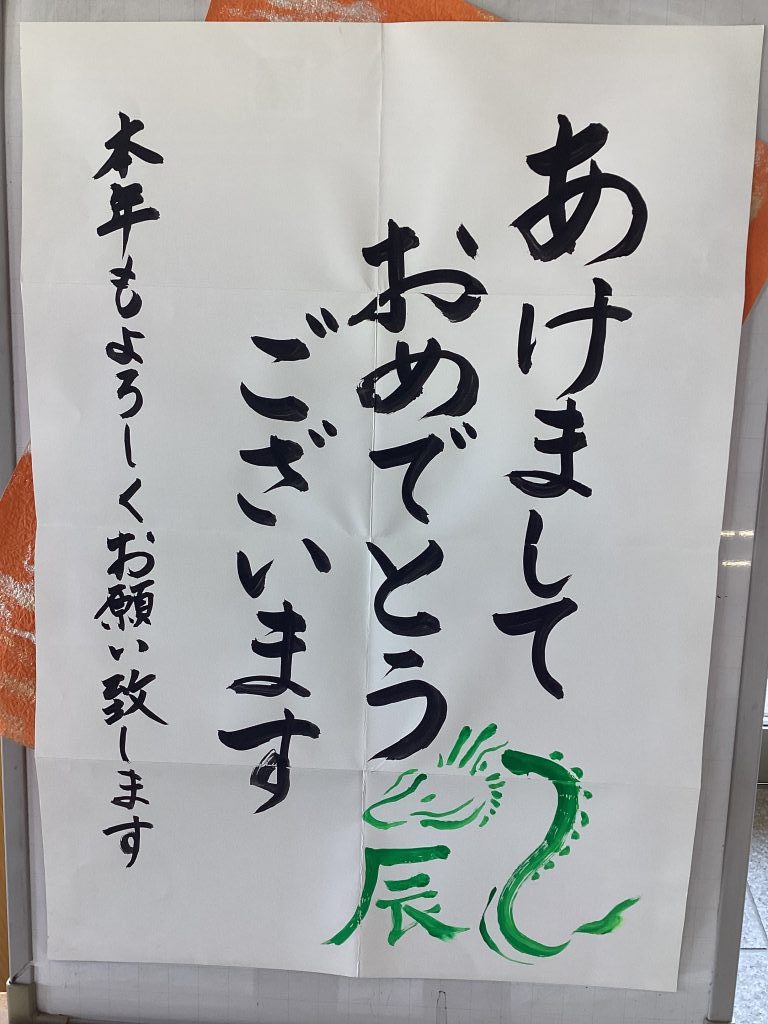 あけまして
おめでとう
ございます
本年もよろしくお願い致します
辰